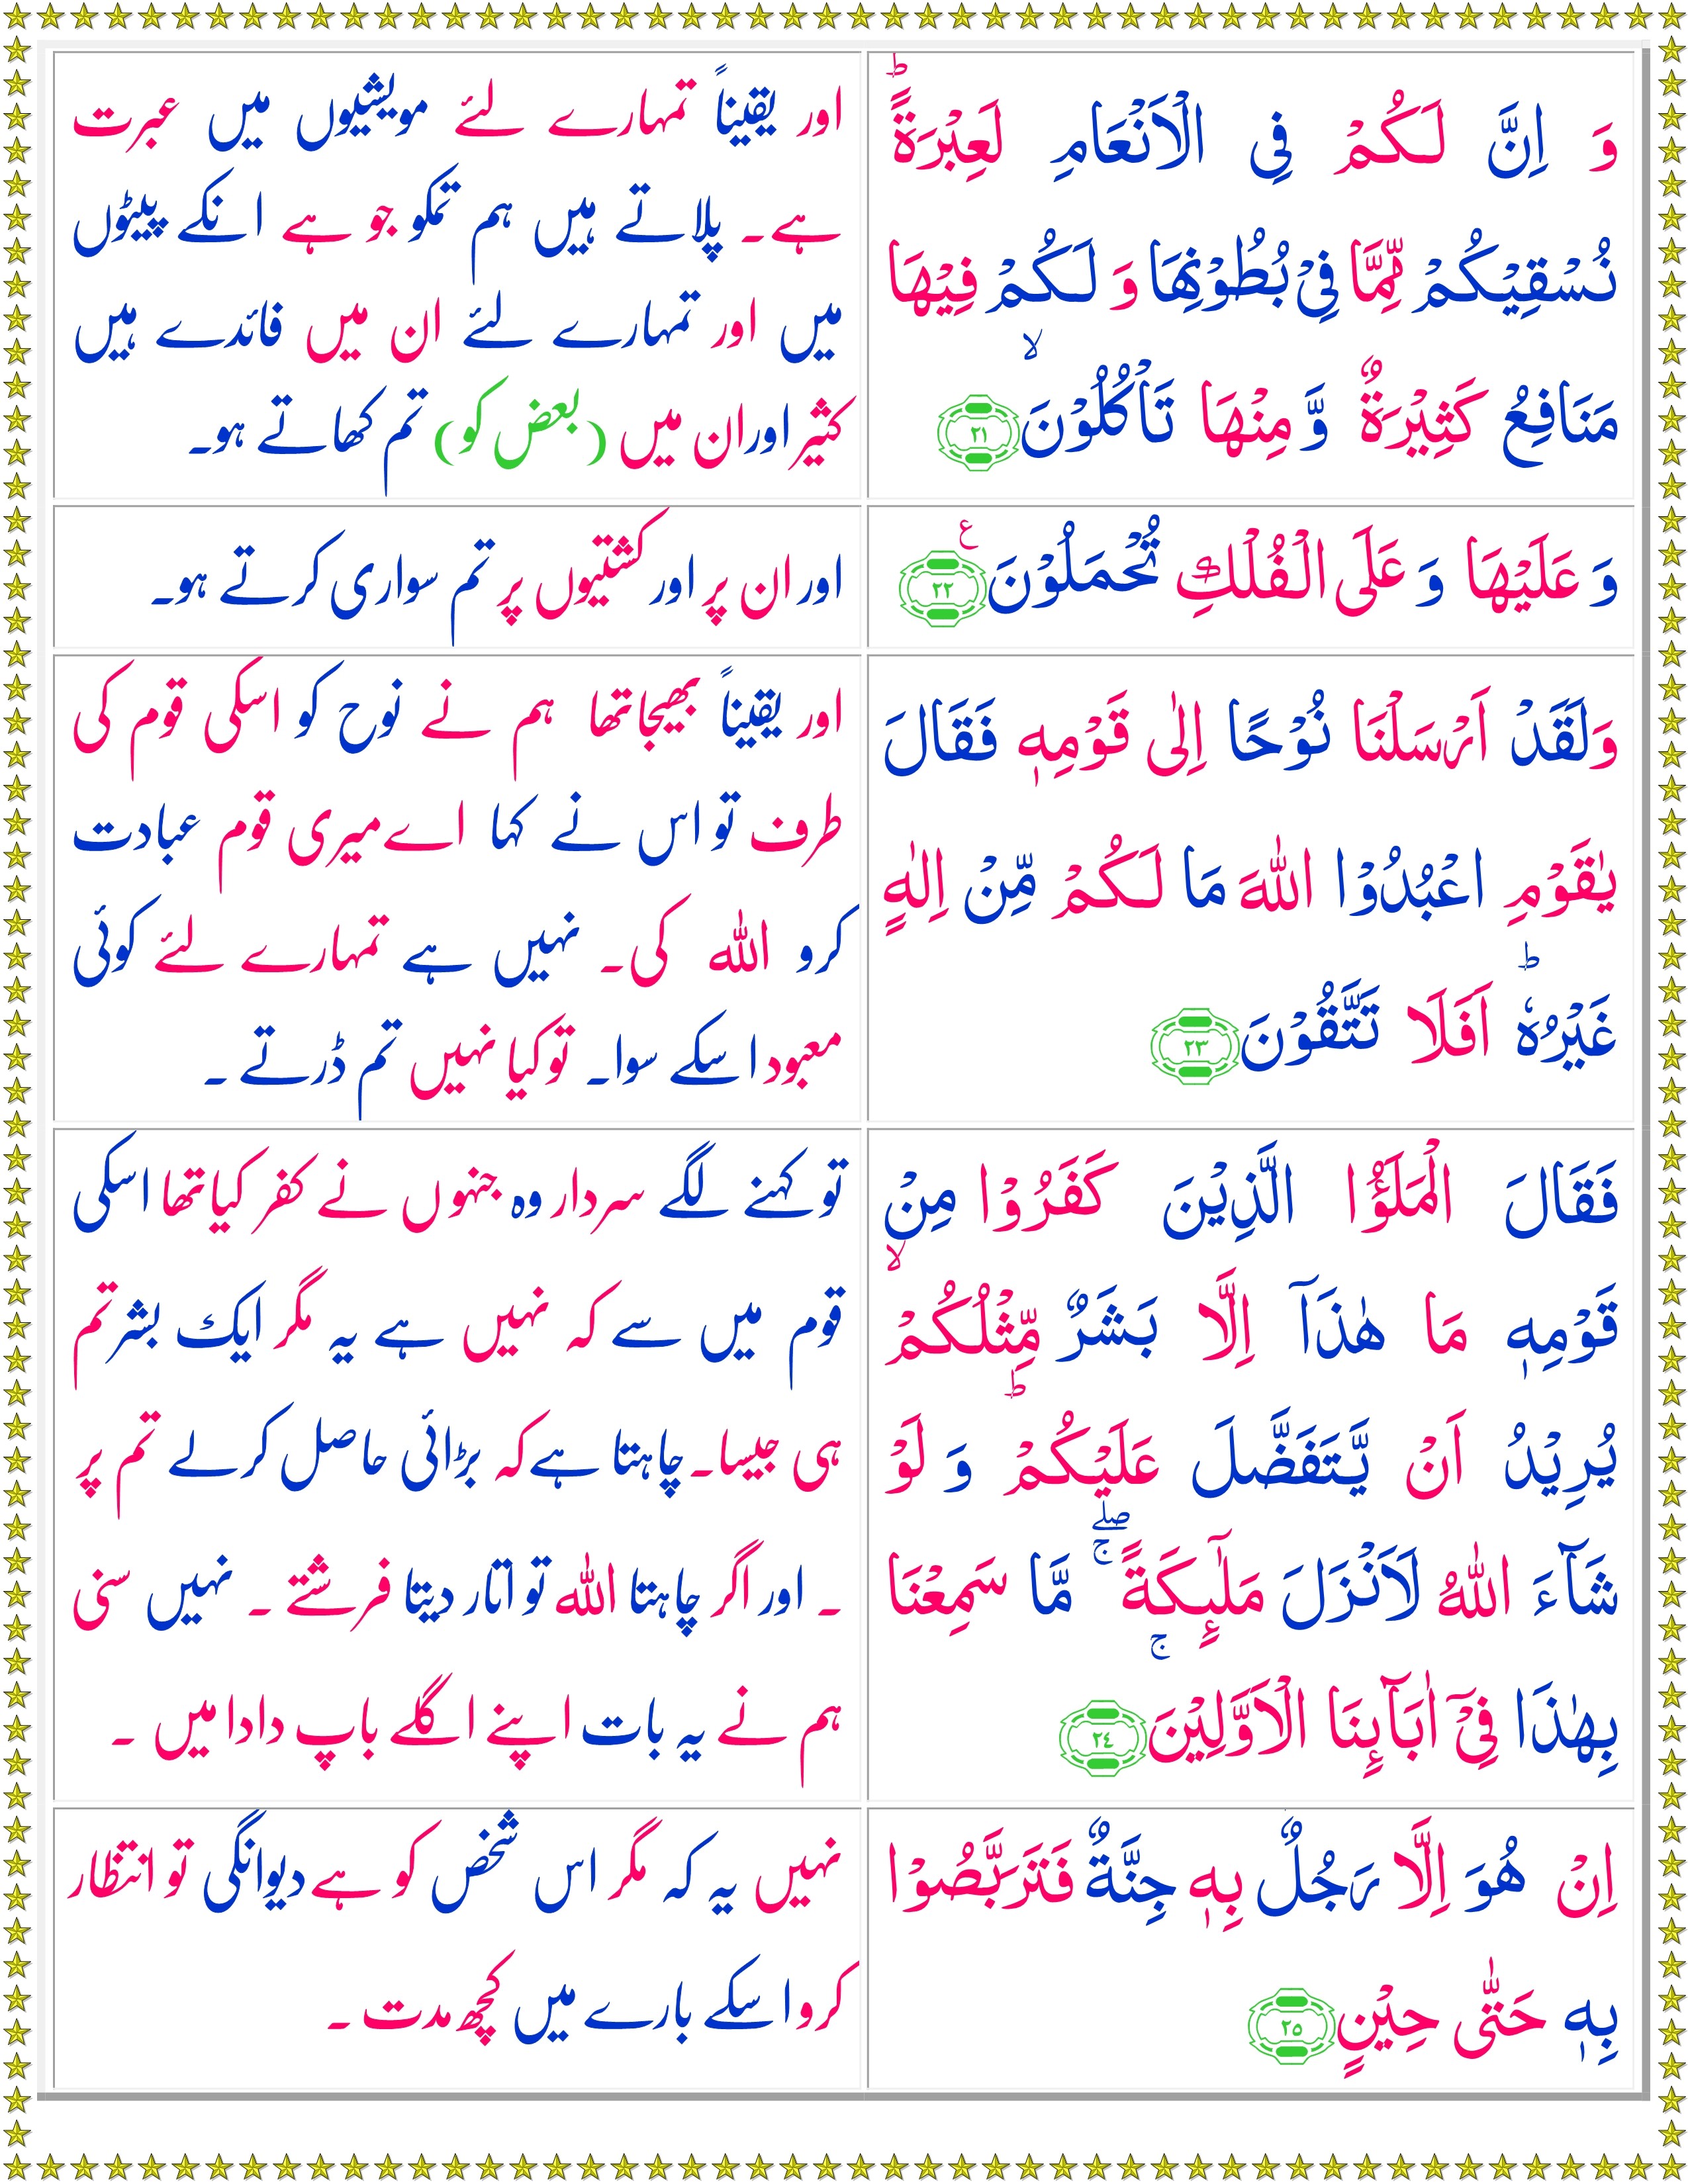 وَ اِنَّ لَـكُمْ فِى الْاَنْعَامِ لَعِبْرَةً ؕ
نُسْقِيْكُمْ مِّمَّا فِىْ بُطُوْنِهَا وَ لَـكُمْ فِيْهَا
مَنَافِعُ كَثِيْرَةٌ وَّ مِنْهَا تَاْكُلُوْنَ ۙ ﴿۲۱﴾
اور یقیناً تمہارے لئے مویشیوں میں عبرت
ہے۔ پلاتے ہیں ہم تمکو جو ہے انکے پیٹوں
میں اور تمہارے لئے ان میں فائدے ہیں
کثیر اور ان میں (بعض کو) تم کھاتے ہو۔
وَ عَلَيْهَا وَ عَلَى الْـفُلْكِ تُحْمَلُوْنَ ع ﴿۲۲﴾
اور ان پر اور کشتیوں پر تم سواری کرتے ہو۔
وَلَقَدْ اَرْسَلْنَا نُوْحًا اِلٰى قَوْمِهٖ فَقَالَ
يٰقَوْمِ اعْبُدُوْا اللّٰهَ مَا لَـكُمْ مِّنْ اِلٰهٍ
غَيْرُهٗ ؕ اَفَلَا تَتَّقُوْنَ ﴿۲۳﴾
اور یقیناً بھیجا تھا ہم نے نوح کو اسکی قوم کی
طرف تو اس نے کہا اے میری قوم عبادت
کرو اللہ کی۔ نہیں ہے تمہارے لئے کوئی
معبود اسکے سوا۔ تو کیا نہیں تم ڈرتے ۔
فَقَالَ الْمَلَؤُا الَّذِيْنَ كَفَرُوْا مِنْ
قَوْمِهٖ مَا هٰذَاۤ اِلَّا بَشَرٌ مِّثْلُكُمْ ۙ
يُرِيْدُ اَنْ يَّـتَفَضَّلَ عَلَيْكُمْ ؕ وَ لَوْ
شَآءَ اللّٰهُ لَاَنْزَلَ مَلٰٓٮِٕكَةً ۖۚ مَّا سَمِعْنَا
بِهٰذَا فِىْۤ اٰبَآٮِٕنَا الْاَوَّلِيْنَ ۚ ﴿۲٤﴾
تو کہنے لگے سردار وہ جنہوں نے کفر کیا تھا اسکی
قوم میں سے کہ نہیں ہے یہ مگر ایک بشر تم
ہی جیسا۔ چاہتا ہے کہ بڑائی حاصل کرلے تم پر
۔ اور اگر چاہتا اللہ تو اتار دیتا فرشتے ۔ نہیں سنی
ہم نے یہ بات اپنے اگلے باپ دادا میں ۔
اِنْ هُوَ اِلَّا رَجُلٌۢ بِهٖ جِنَّةٌ فَتَرَبَّصُوْا
بِهٖ حَتّٰى حِيْنٍ ﴿۲٥﴾
نہیں یہ کہ مگر اس شخص کو ہے دیوانگی تو انتظار
کرو اسکے بارے میں کچھ مدت ۔